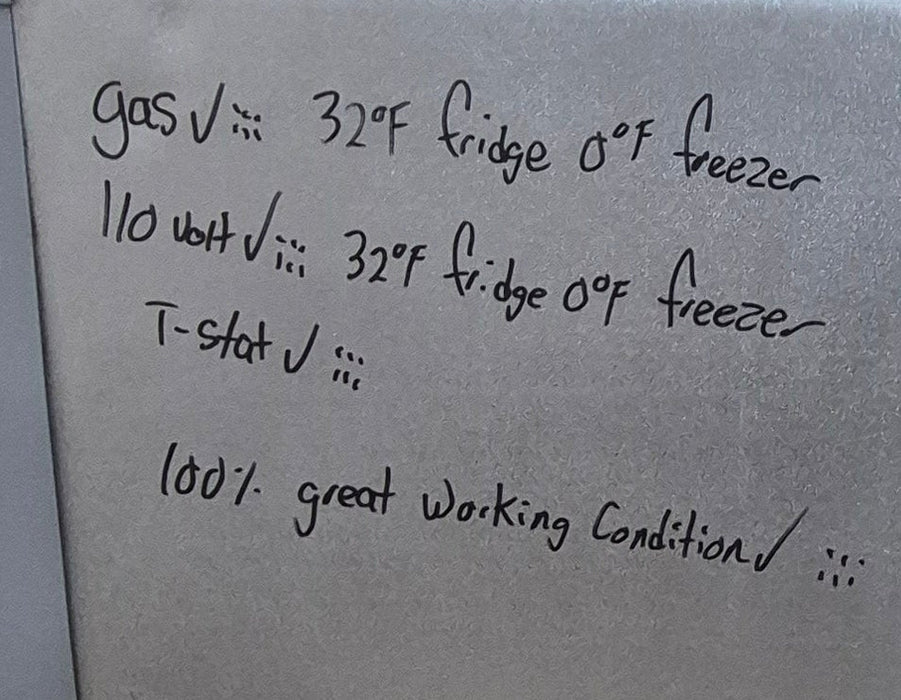 gas ✓ ⁝⁝⁝ 32°F fridge 0°F freezer
110 volt ✓ ⁝⁝⁝ 32°F fridge 0°F freezer
T-stat ✓ ⁝⁝⁝
100% great working Condition ✓ ⁝⁝⁝